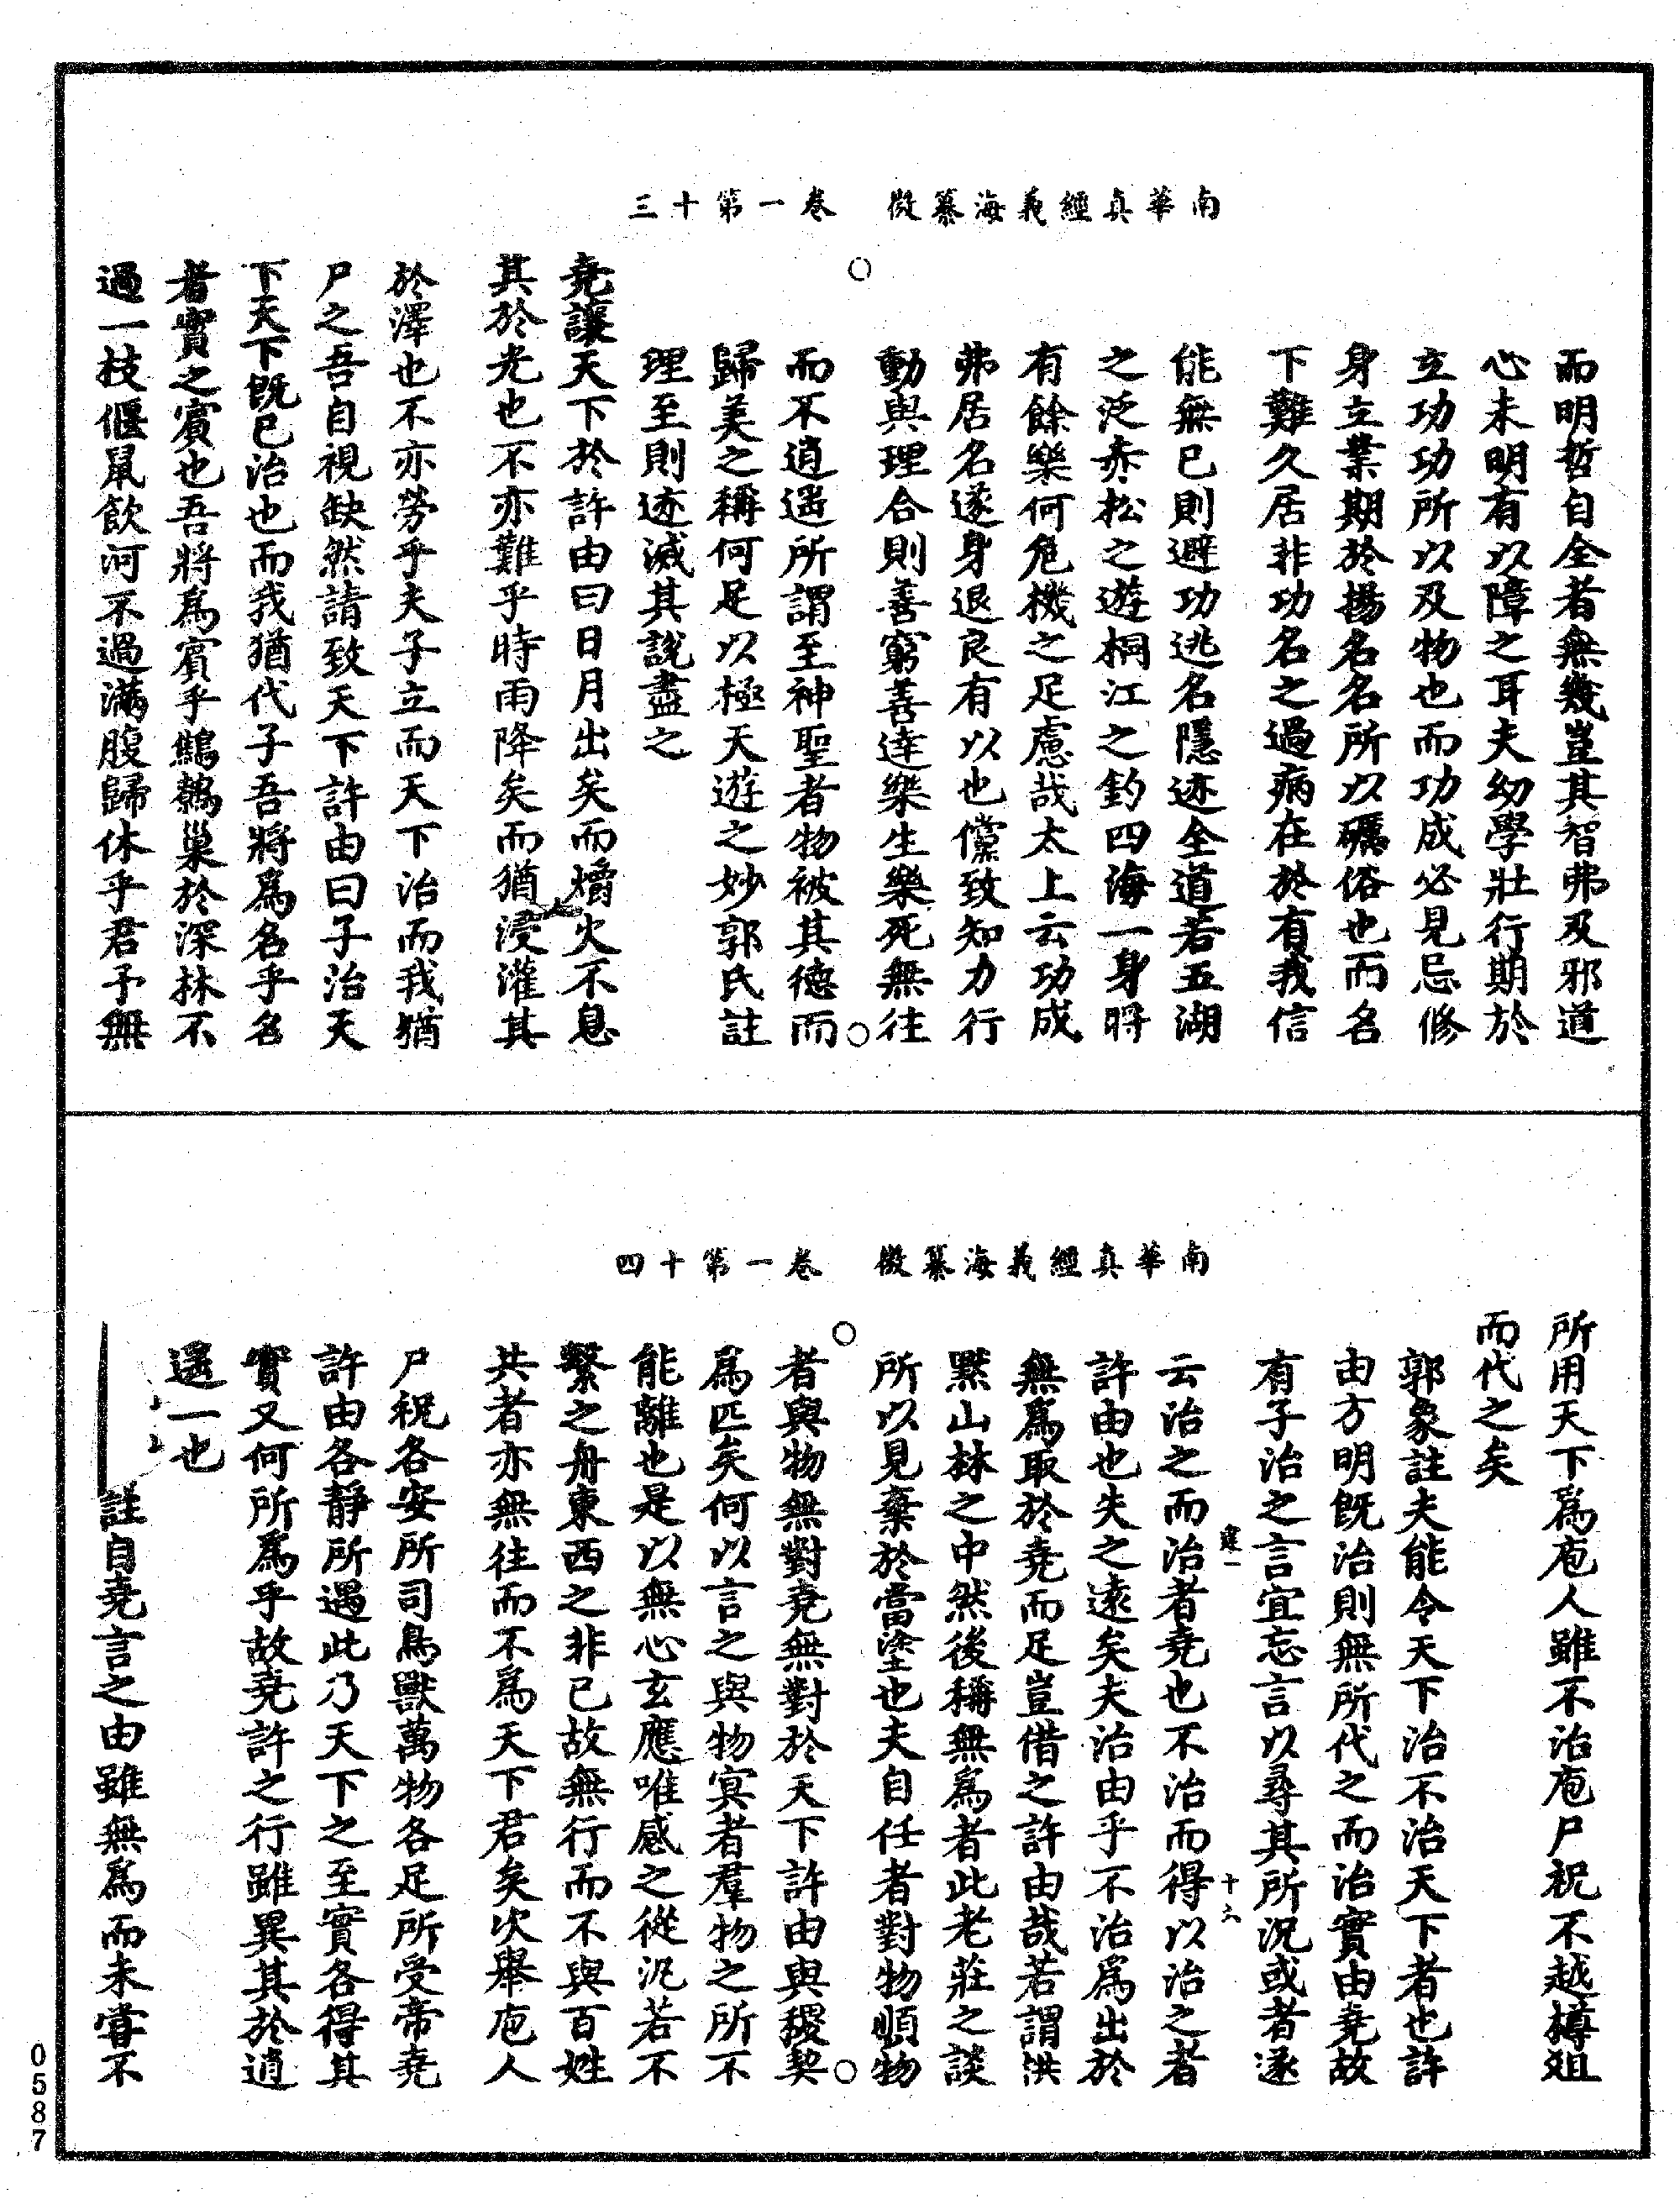 南華真經義海纂微　卷一第十三
而明哲自全者無幾豈其智弗及邪道
心未明有以障之耳夫幼學壯行期於
立功功所以及物也而功成必見忌修
身立業期於揚名名所以礪俗也而名
下難久居非功名之過病在於有我信
能無己則避功逃名隱迹全道若五湖
之泛赤松之遊桐江之釣四海一身將
有餘樂何危機之足慮哉太上云功成
弗居名遂身退良有以也儻致知力行
動與理合則善窮善達樂生樂死無往
而不逍遥所謂至神聖者物被其德而
歸美之稱何足以極天遊之妙郭氏註
理至則迹滅其說盡之
堯讓天下於許由曰日月出矣而爝火不息
其於光也不亦難乎時雨降矣而猶浸灌其
於澤也不亦勞乎夫子立而天下治而我猶
尸之吾自視缺然請致天下許由曰子治天
下天下既已治也而我猶代子吾將為名乎名
者實之賓也吾將為賓乎鷦鷯巢於深林不
過一枝偃鼠飲河不過滿腹歸休乎君予無
南華真經義海纂微　卷一第十四
所用天下為庖人雖不治庖尸祝不越樽俎
而代之矣
郭象註夫能令天下治不治天下者也許
由方明既治則無所代之而治實由堯故
有子治之言宜忘言以尋其所況或者遂
云治之而治者堯也不治而得以治之者
許由也失之遠矣夫治由乎不治為出於
無為取於堯而足豈借之許由哉若謂拱
默山林之中然後稱無為者此老莊之談
所以見棄於當塗也夫自任者對物順物
者與物無對堯無對於天下許由與稷契
為匹矣何以言之與物冥者羣物之所不
能離也是以無心玄應唯感之從汎若不
繫之舟東西之非已故無行而不與百姓
共者亦無往而不為天下君矣次舉庖人
尸祝各安所司鳥獸萬物各足所受帝堯
許由各靜所遇此乃天下之至實各得其
實又何所為乎故堯許之行雖異其於逍
遥一也
註自堯言之由雖無為而未嘗不
十六
0587